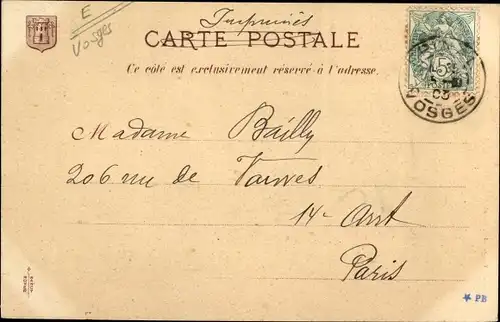 E
Vosges
Imprimés
CARTE POSTALE
Ce côté est exclusivement réservé à l'adresse.
5
03
VOSGES
Madame Bailly
206 rue de Vanves
14e Arrt
Paris
* PB